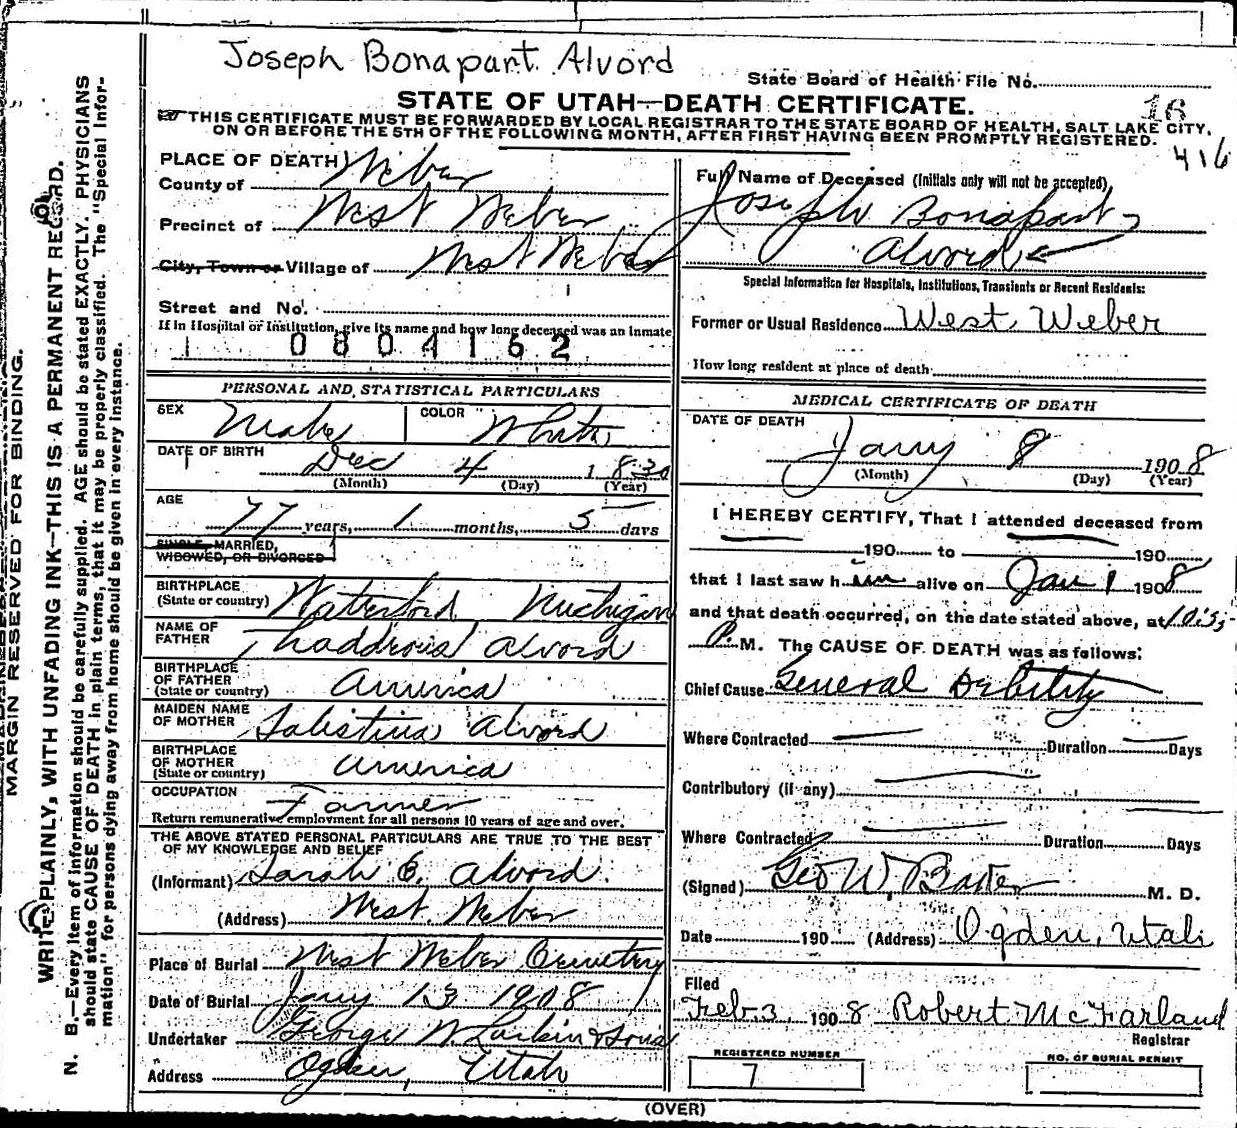 Joseph Bonapart Alvord
State Board of Health File No.
STATE OF UTAH—DEATH CERTIFICATE.
16
416
THIS CERTIFICATE MUST BE FORWARDED BY LOCAL REGISTRAR TO THE STATE BOARD OF HEALTH, SALT LAKE CITY,
ON OR BEFORE THE 5TH OF THE FOLLOWING MONTH, AFTER FIRST HAVING BEEN PROMPTLY REGISTERED.
PLACE OF DEATH
County of Weber
Precinct of West Weber
City, Town or Village of West Weber
Street and No.
If in Hospital or Institution, give its name and how long deceased was an inmate
0804162
PERSONAL AND STATISTICAL PARTICULARS
SEX Male COLOR White
DATE OF BIRTH Dec 4 1830
(Month) (Day) (Year)
AGE
77 years, 1 months, 5 days
SINGLE, MARRIED,
WIDOWED, OR DIVORCED
BIRTHPLACE
(State or country) Watterford Michigan
NAME OF
FATHER Thaddrous Alvord
BIRTHPLACE
OF FATHER
(State or country) America
MAIDEN NAME
OF MOTHER Salistina Alvord
BIRTHPLACE
OF MOTHER
(State or country) America
OCCUPATION Farmer
Return remunerative employment for all persons 10 years of age and over.
THE ABOVE STATED PERSONAL PARTICULARS ARE TRUE TO THE BEST
OF MY KNOWLEDGE AND BELIEF
(Informant) Sarah E. Alvord.
(Address) West Weber
Place of Burial West Weber Cemetery
Date of Burial Jany 13 1908
Undertaker George W. Larkin & Sons
Address Ogden, Utah
Full Name of Deceased (Initials only will not be accepted)
Joseph Bonapart
Alvord
Special Information for Hospitals, Institutions, Transients or Recent Residents:
Former or Usual Residence West Weber
How long resident at place of death
MEDICAL CERTIFICATE OF DEATH
DATE OF DEATH
Jany 8 1908
(Month) (Day) (Year)
I HEREBY CERTIFY, That I attended deceased from
190 to 190
that I last saw him alive on Jan 1 1908
and that death occurred, on the date stated above, at
P.M. The CAUSE OF DEATH was as follows:
Chief Cause General Debility
Where Contracted Duration Days
Contributory (if any)
Where Contracted Duration Days
(Signed) Geo W. Baker M. D.
Date 190 (Address) Ogden, Utah
Filed
Feb 3 1908 Robert McFarland
Registrar
REGISTERED NUMBER
7
NO. OF BURIAL PERMIT
(OVER)
MARGIN RESERVED FOR BINDING.
WRITE PLAINLY, WITH UNFADING INK—THIS IS A PERMANENT RECORD.
N. B.—Every item of information should be carefully supplied. AGE should be stated EXACTLY. PHYSICIANS
should state CAUSE OF DEATH in plain terms, that it may be properly classified. The "Special Infor-
mation" for persons dying away from home should be given in every instance.